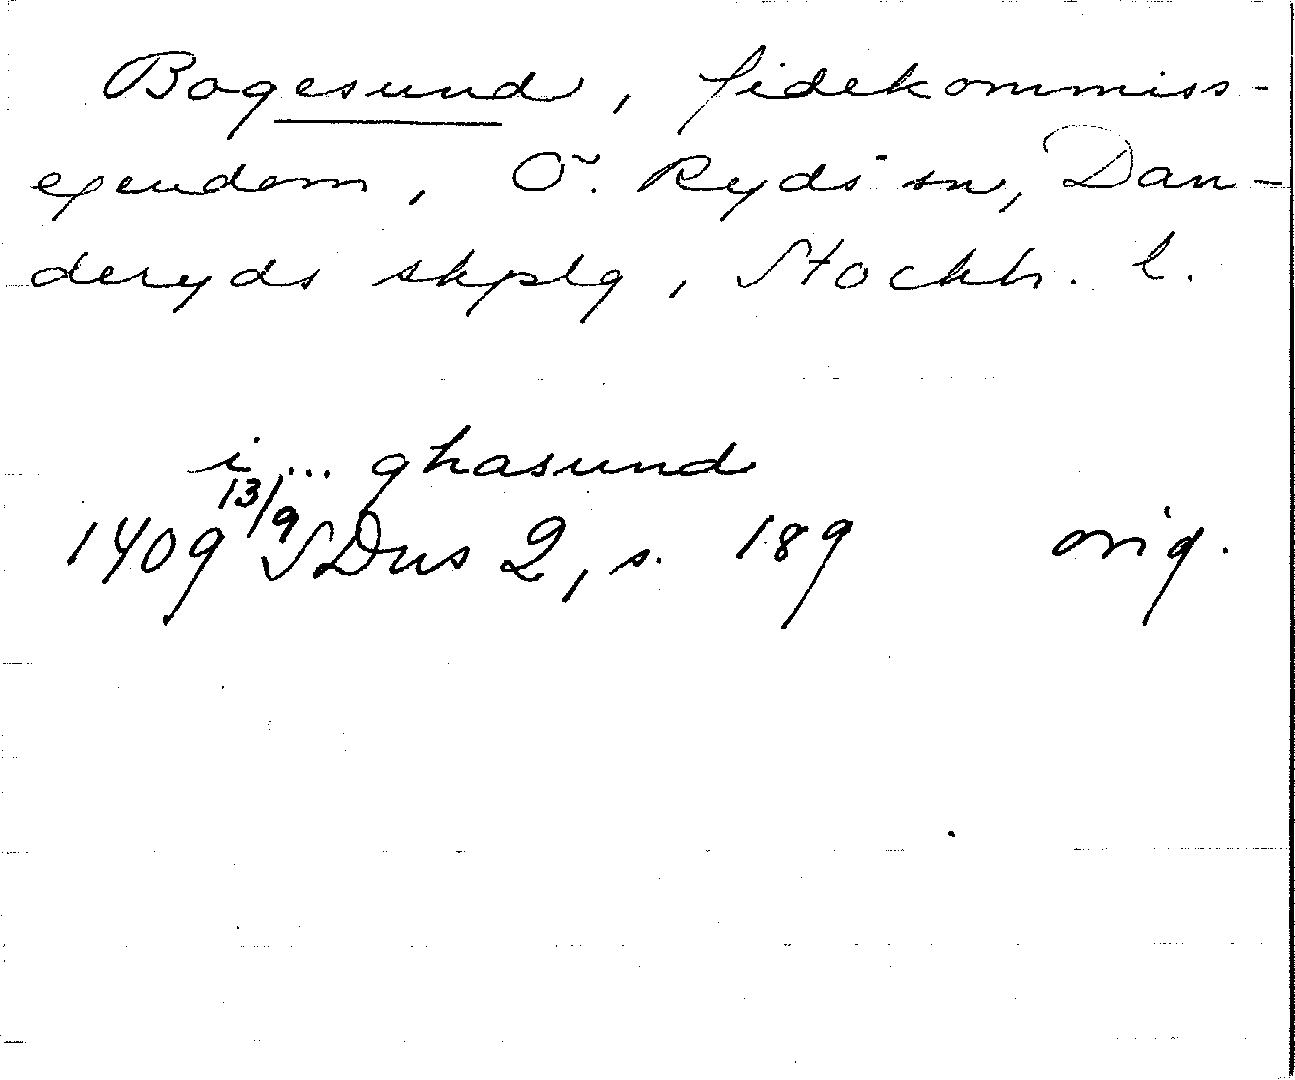 Bogesund, fidekommiss-
egendom, Ö. Ryds sn, Dan-
deryds skplg, Stockh. l.
i ... ghasund
1409 13/9 SDns 2, s. 189 orig.